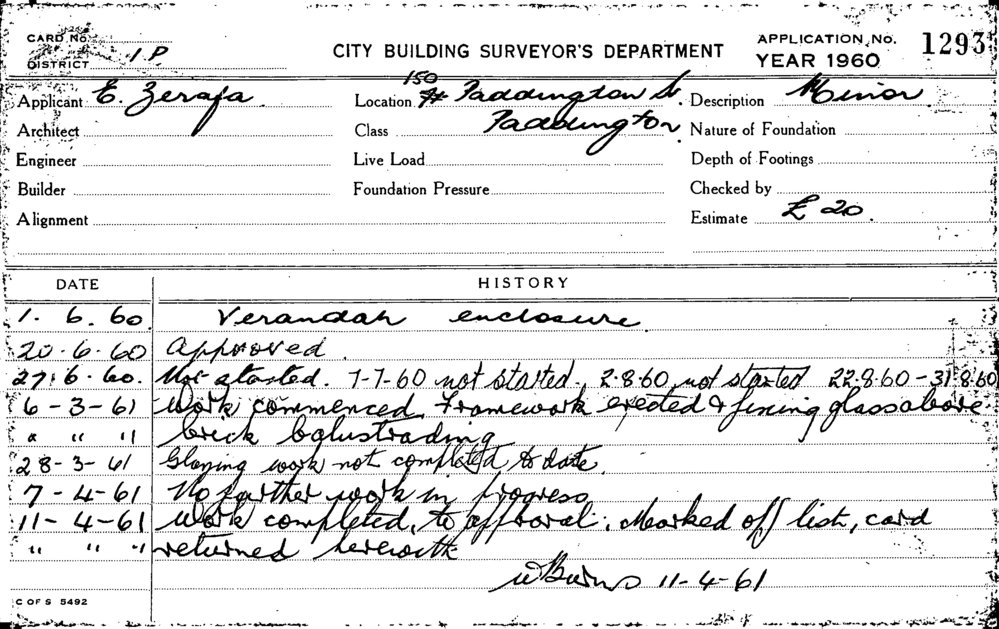 CARD No.
DISTRICT 1 P.
CITY BUILDING SURVEYOR'S DEPARTMENT
APPLICATION No. 1293
YEAR 1960
Applicant E. Zerafa
Location 150 Paddington St.
Description Minor
Architect
Class Paddington
Nature of Foundation
Engineer
Live Load
Depth of Footings
Builder
Foundation Pressure
Checked by
Alignment
Estimate £ 20.
DATE HISTORY
1. 6. 60 Verandah enclosure.
20-6-60 Approved.
27.6.60. Not started. 7-7-60 not started, 2.8.60, not started 22.8.60 - 31.8.60
6-3-61 Work commenced, Framework erected & fixing glass above
" " " brick balustrading
28-3-61 Glazing work not completed to date.
7-4-61 No further work in progress
11-4-61 Work completed, to approval. Marked off list, card
" " " returned herewith
W Burns 11-4-61
C OF S 5492